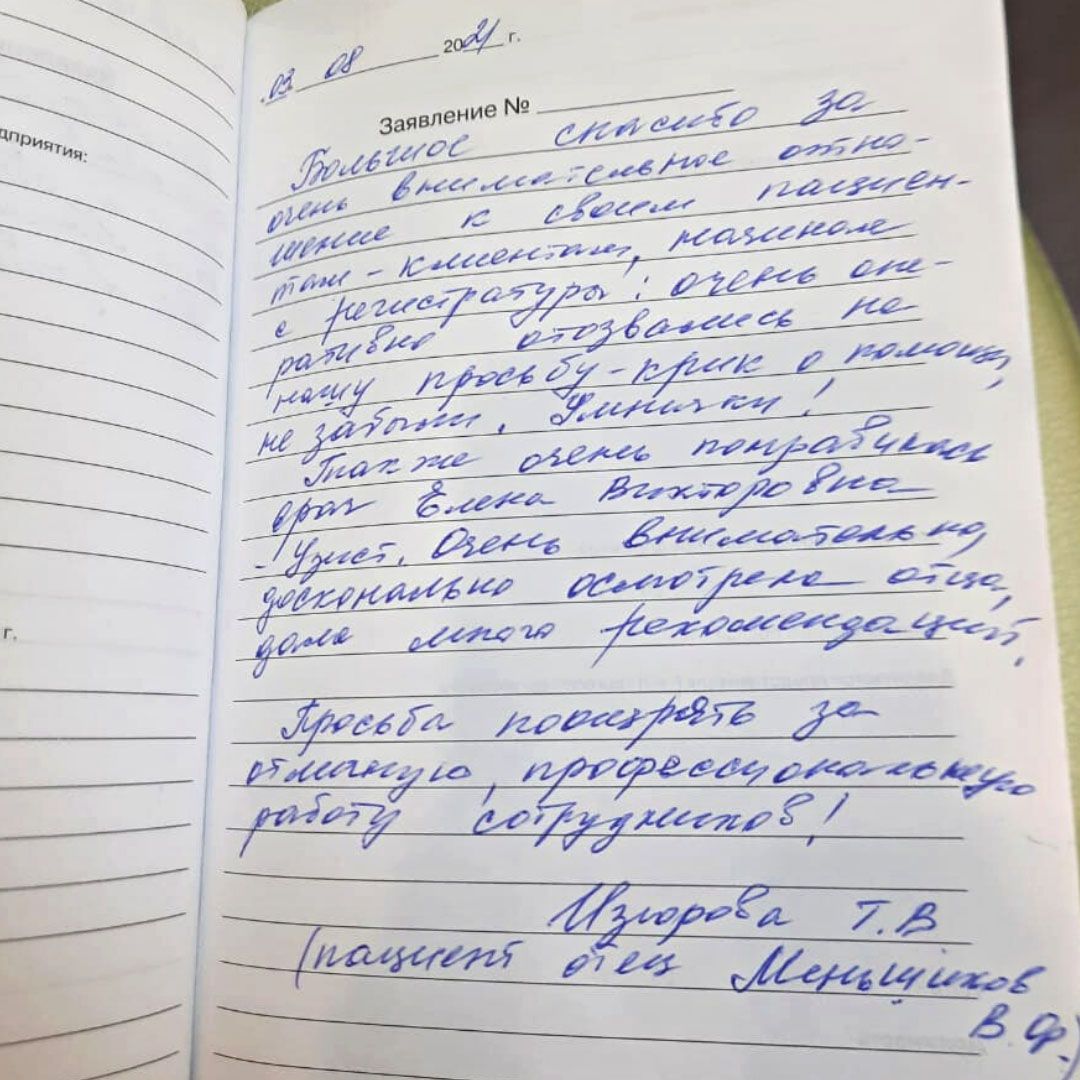 дприятия:
г.
03 08 2021 г.
Заявление №
Большое спасибо за
очень внимательное отно-
шение к своим пациен-
там - клиентам, начиная
с регистратуры: очень опе-
ративно отозвались на
нашу просьбу - крик о помощи,
не забыли. Умнички!
Также очень понравилась
врач Елена Викторовна
- Узист. Очень внимательно,
досконально осмотрела отца,
дала много рекомендаций.
Просьба поощрять за
отличную, профессиональную
работу сотрудников!
Изюрова Т.В
(пациент отец Меньщиков
В.Ф.)